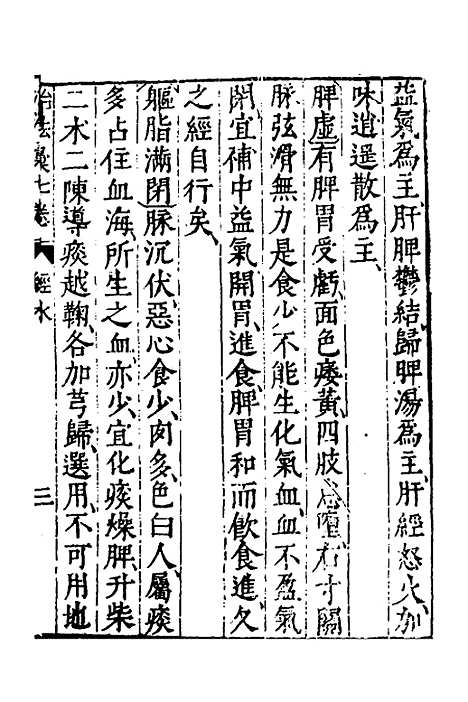 益氣爲主肝脾鬱結歸脾湯爲主肝經怒火加
味逍遥散爲主
脾虛有脾胃受虧面色痿黃四肢　瘦右寸關
脉弦滑無力是食少不能生化氣血血不盈氣
閉宜補中益氣開胃進食脾胃和而飲食進久
之經自行矣
軀脂滿閉脉沉伏惡心食少肉多色白人屬痰
多占住血海所生之血亦少宜化痰燥脾升柴
二术二陳導痰越鞠各加芎歸選用不可用地
治法彚七卷　經水　三